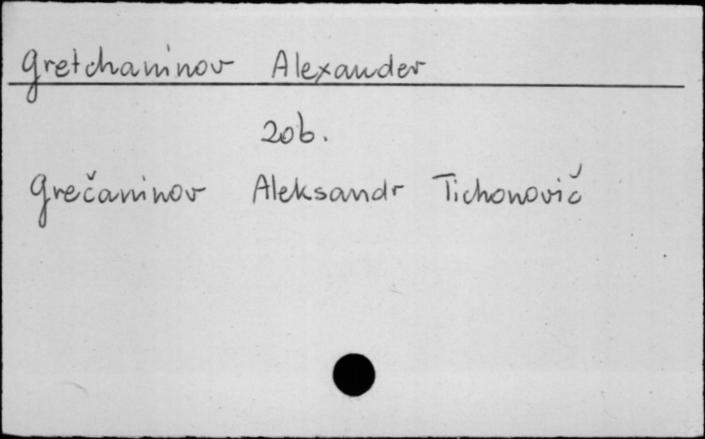 Gretchaninov Alexander
zob.
Grečaninov Aleksandr Tichonovič